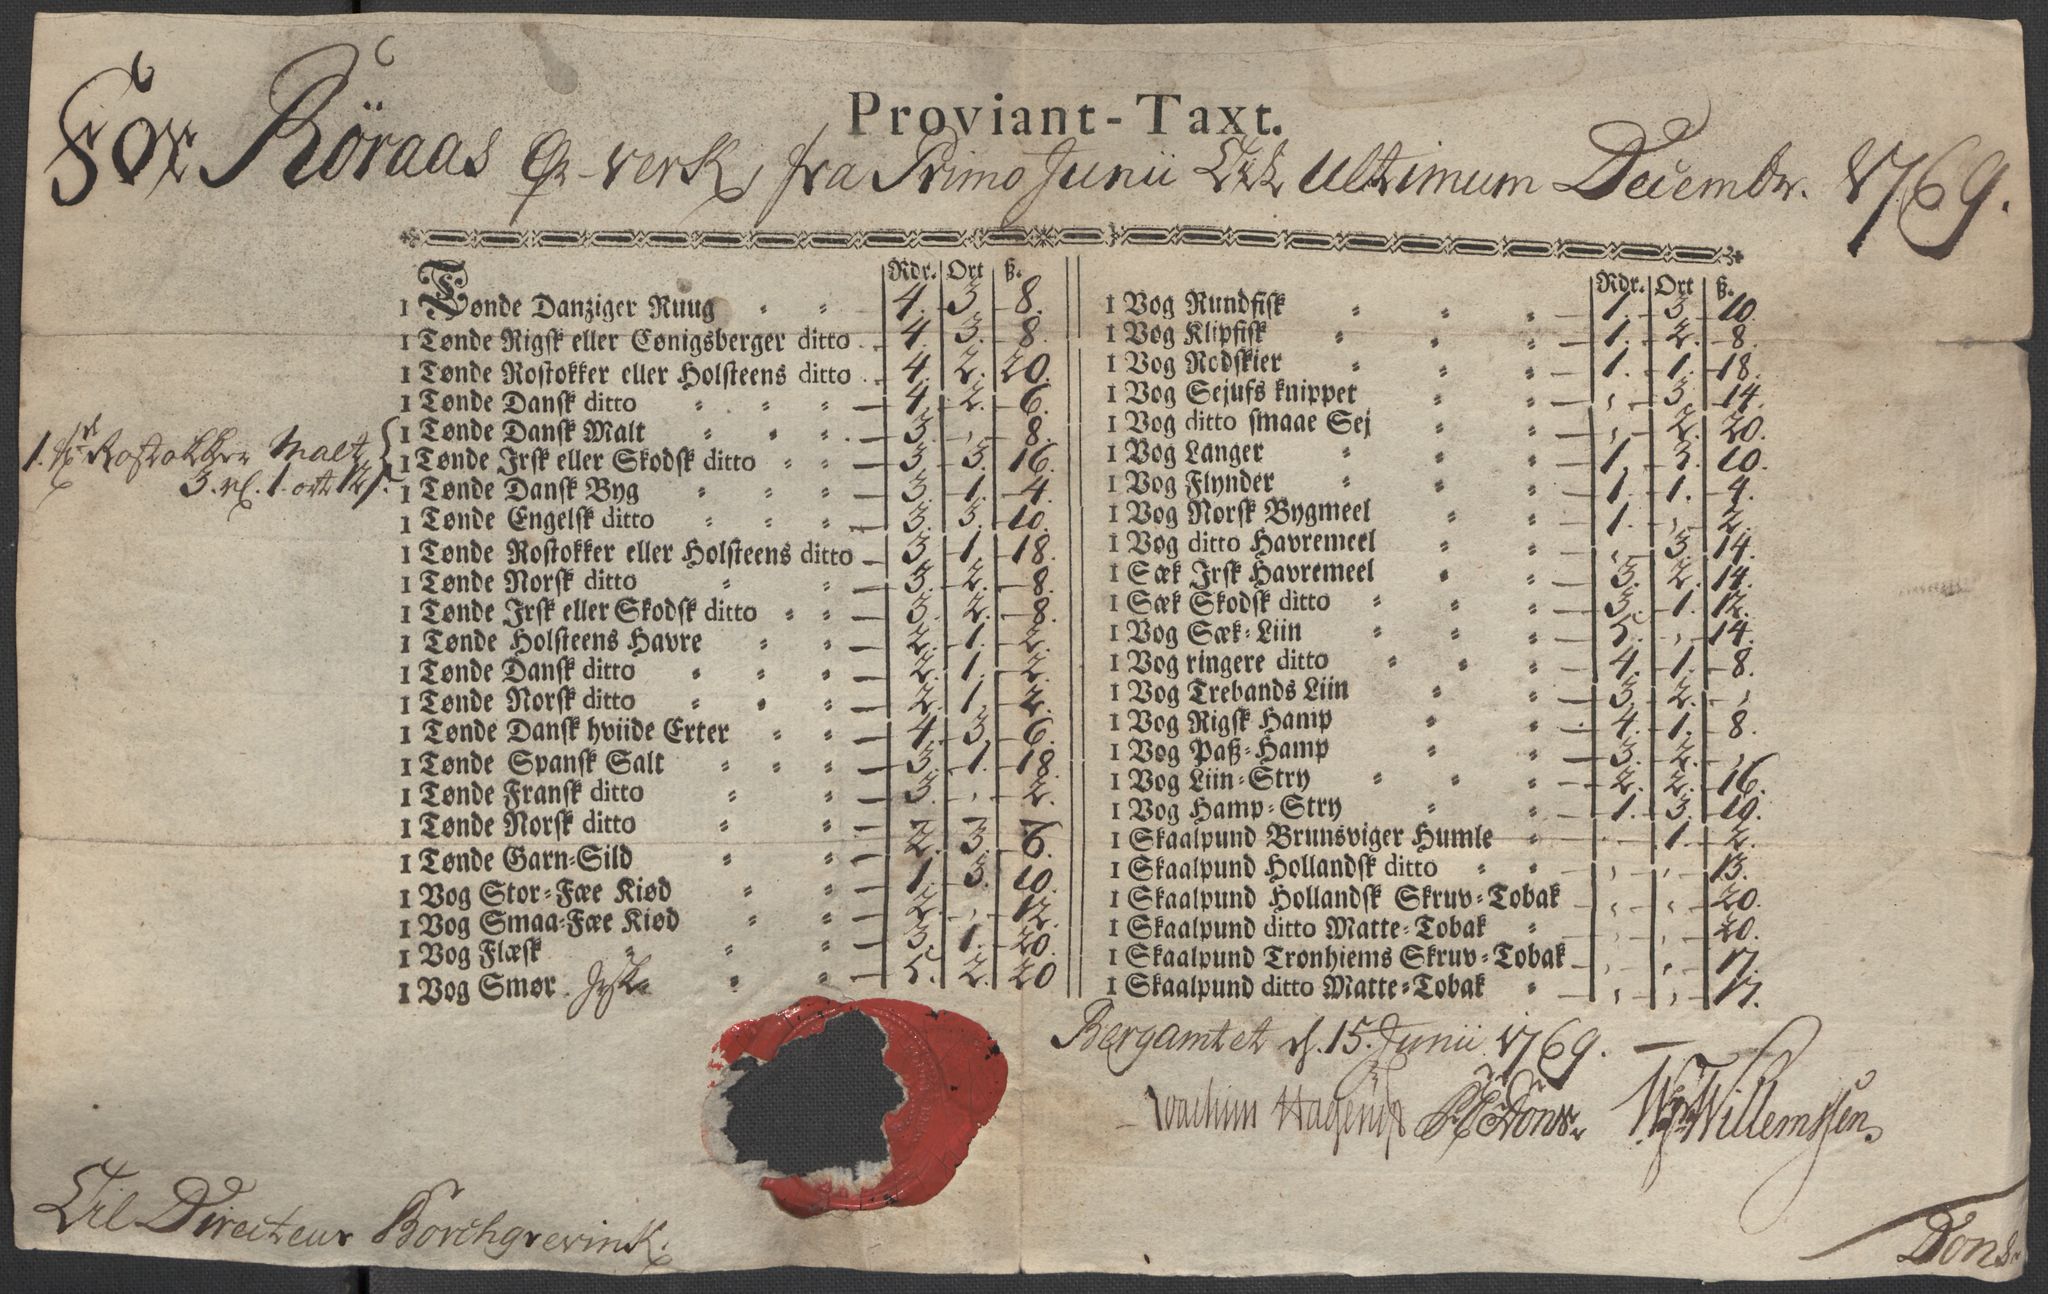 Proviant-Taxt.
For Röraas verk, fra Primo Junii til ultimum Decembr. 1769.
Rdr. Ort ß.
1 Tønde Danziger Ruug 4. 3. 8.
1 Tønde Rigsk eller Cønigsberger ditto 4. 3. 8.
1 Tønde Rostokker eller Holsteens ditto 4. 2. 20.
1 Tønde Dansk ditto 4. 2. 6.
1 Tønde Dansk Malt 3. , 8.
1. Rostokker Malt
3. rd. 1. ort 12 s.
1 Tønde Irsk eller Skodsk ditto 3. 3. 16.
1 Tønde Dansk Byg 3. 1. 4.
1 Tønde Engelsk ditto 3. 3. 10.
1 Tønde Rostokker eller Holsteens ditto 3. 1. 18.
1 Tønde Norsk ditto 3. 2. 8.
1 Tønde Irsk eller Skodsk ditto 3. 2. 8.
1 Tønde Holsteens Havre 2. 1. 2.
1 Tønde Dansk ditto 2. 1. 2.
1 Tønde Norsk ditto 2. 1. 2.
1 Tønde Dansk hviide Erter 4. 3. 6.
1 Tønde Spansk Salt 3. 1. 18.
1 Tønde Fransk ditto 3. , 2.
1 Tønde Norsk ditto
1 Tønde Garn-Sild 2. 3. 6.
1 Vog Stor-Fæe Kiød 1. 3. 10.
1 Vog Smaa-Fæe Kiød 2. , 12.
1 Vog Flæsk 3. 1. 20.
1 Vog Smør. Jysk 5. 2. 20
Rdr. Ort ß.
1 Vog Rundfisk 1. 3. 10.
1 Vog Klipfisk 1. 2. 8.
1 Vog Rodskier 1. 1. 18.
1 Vog Sejufs knippet , 3. 14.
1 Vog ditto smaae Sej , 2. 20.
1 Vog Langer 1. 3. 10.
1 Vog Flynder 1. 1. 4.
1 Vog Norsk Bygmeel 1. , 2.
1 Vog ditto Havremeel , 3. 14.
1 Sæk Irsk Havremeel 3. 2. 14.
1 Sæk Skodsk ditto 3. 1. 12.
1 Vog Sæk-Liin 5. , 14.
1 Vog ringere ditto 4. 1. 8.
1 Vog Trebands Liin 3. 2. ,
1 Vog Rigsk Hamp 4. 1. 8.
1 Vog Paß-Hamp 3. 2. ,
1 Vog Liin-Stry 2. 2. 16.
1 Vog Hamp-Stry 1. 3. 10.
1 Skaalpund Brunsviger Humle , 1. 2.
1 Skaalpund Hollandsk ditto , , 13.
1 Skaalpund Hollandsk Skruv-Tobak , , 20.
1 Skaalpund ditto Matte-Tobak , , 20.
1 Skaalpund Tronhiems Skruv-Tobak , , 17.
1 Skaalpund ditto Matte-Tobak , , 17.
Bergamtet d. 15. Junii 1769.
Joachim Dons. Willemssen.
Til Directeur Borchgrevink.
Dons